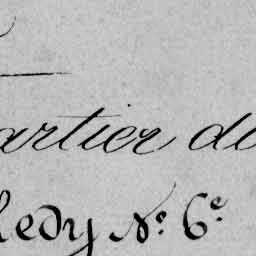 artier du
ledy N° 6e